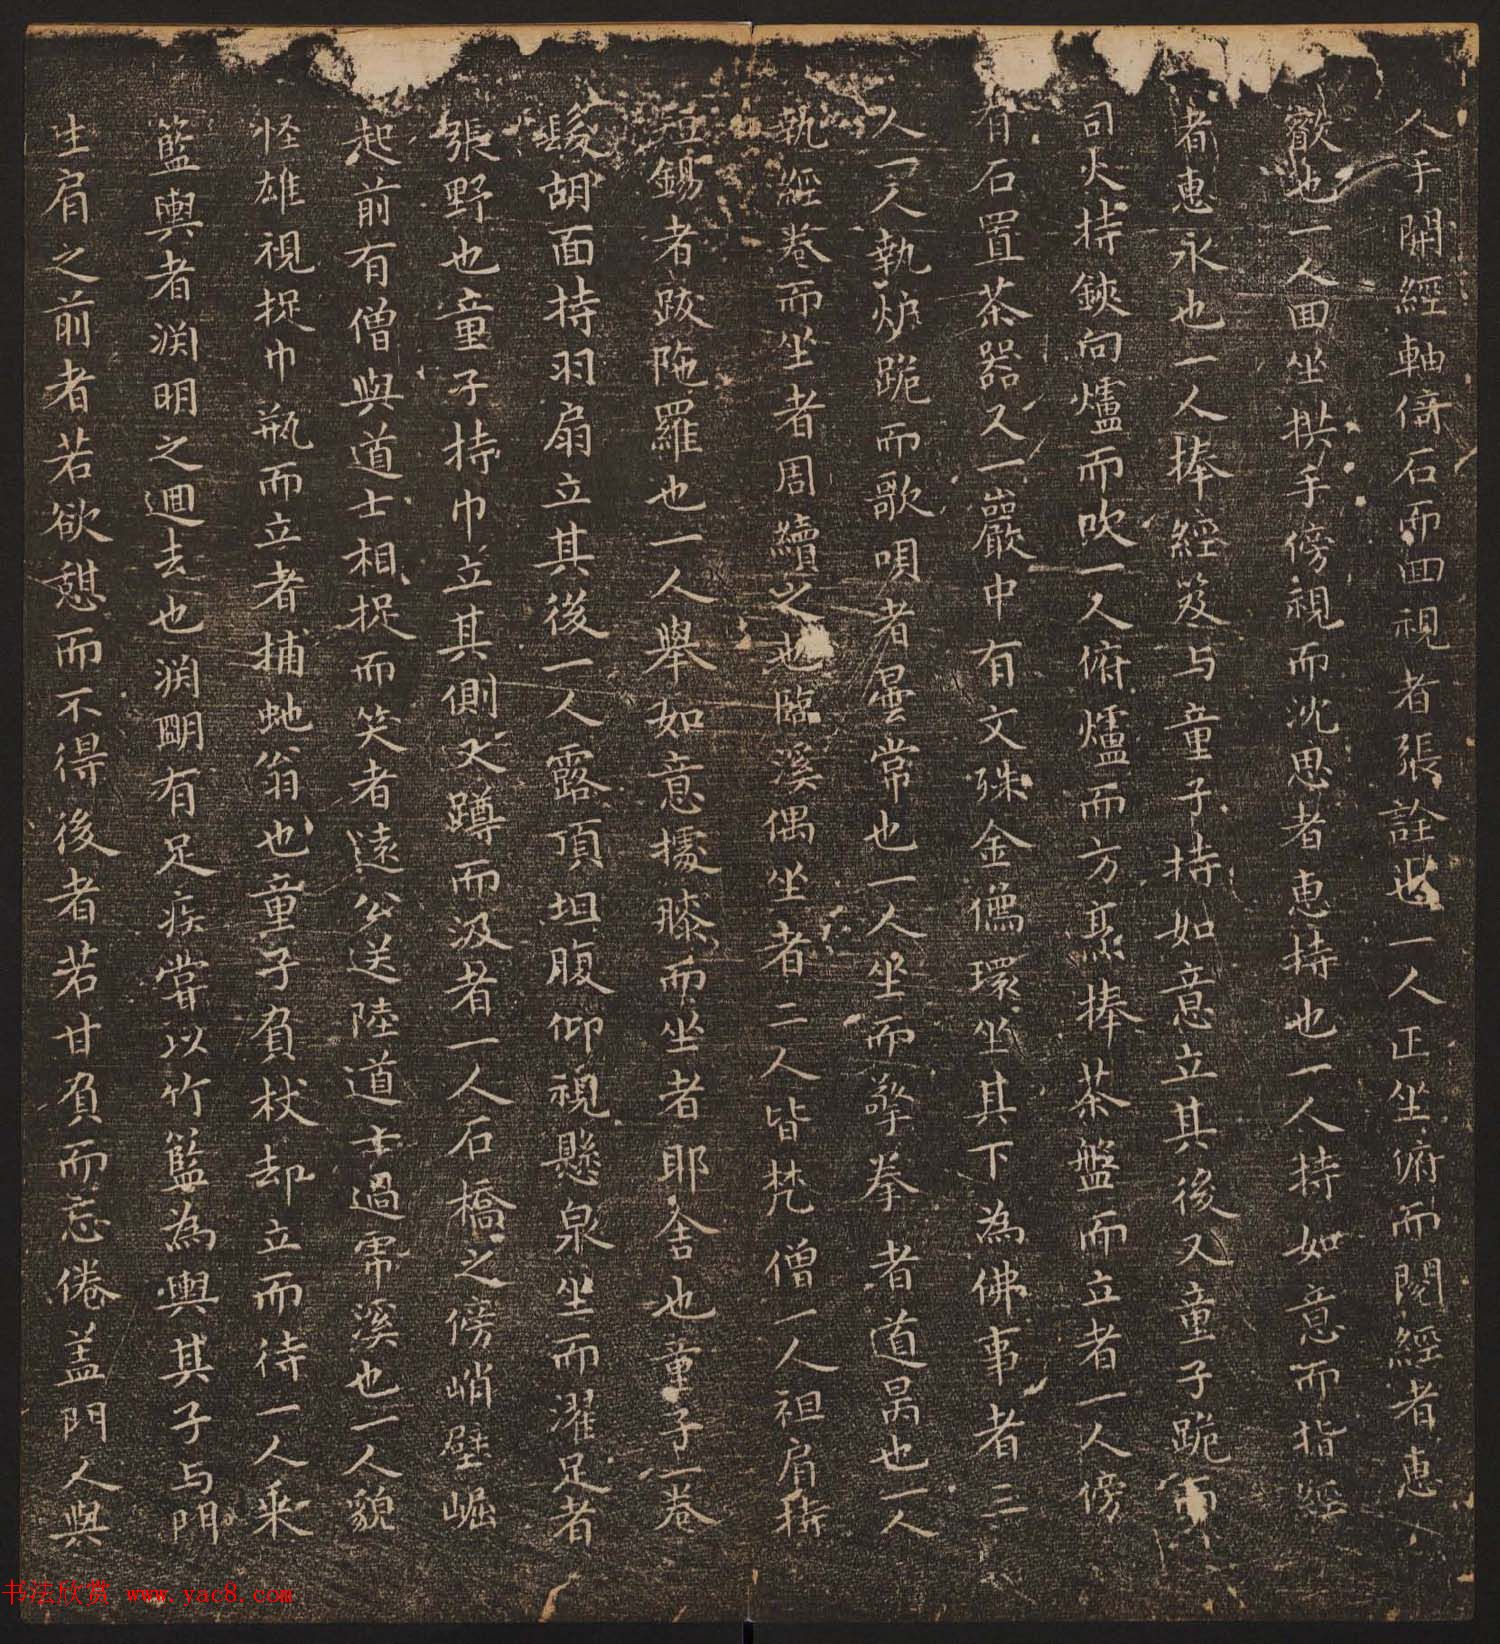 人手開經軸倚石而回視者張詮也一人正坐俯而閱經者惠
叡也一人回坐拱手傍視而沈思者惠持也一人持如意而指經
者惠永也一人捧經笈与童子持如意立其後又童子跪而
司火持鋏向爐而吹一人俯爐而方烹捧茶盤而立者一人傍
有石置茶器又一巖中有文殊金像環坐其下為佛事者三
人一人執炉跪而歌唄者曇常也一人坐而擎拳者道昺也一人
執經卷而坐者周續之也臨溪偶坐者二人皆梵僧一人袒肩持
短錫者跋陁羅也一人舉如意據膝而坐者耶舍也童子一卷
髮胡面持羽扇立其後一人露頂坦腹仰視懸泉坐而濯足者
張野也童子持巾立其側又蹲而汲者一人石橋之傍峭壁崛
起前有僧與道士相捉而笑者遠公送陸道士過虎溪也一人貌
怪雄視捉巾瓶而立者捕虵翁也童子負杖却立而待一人乘
籃輿者渊明之迴去也渊明有足疾嘗以竹籃為輿其子与門
生肩之前者若欲憩而不得後者若甘負而忘倦盖門人與
书法欣赏 www.yac8.com